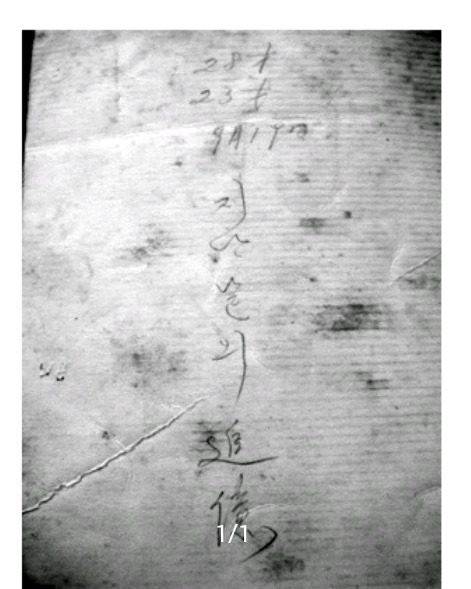 28才
23才
9月19日
지난날의 追憶
1/1